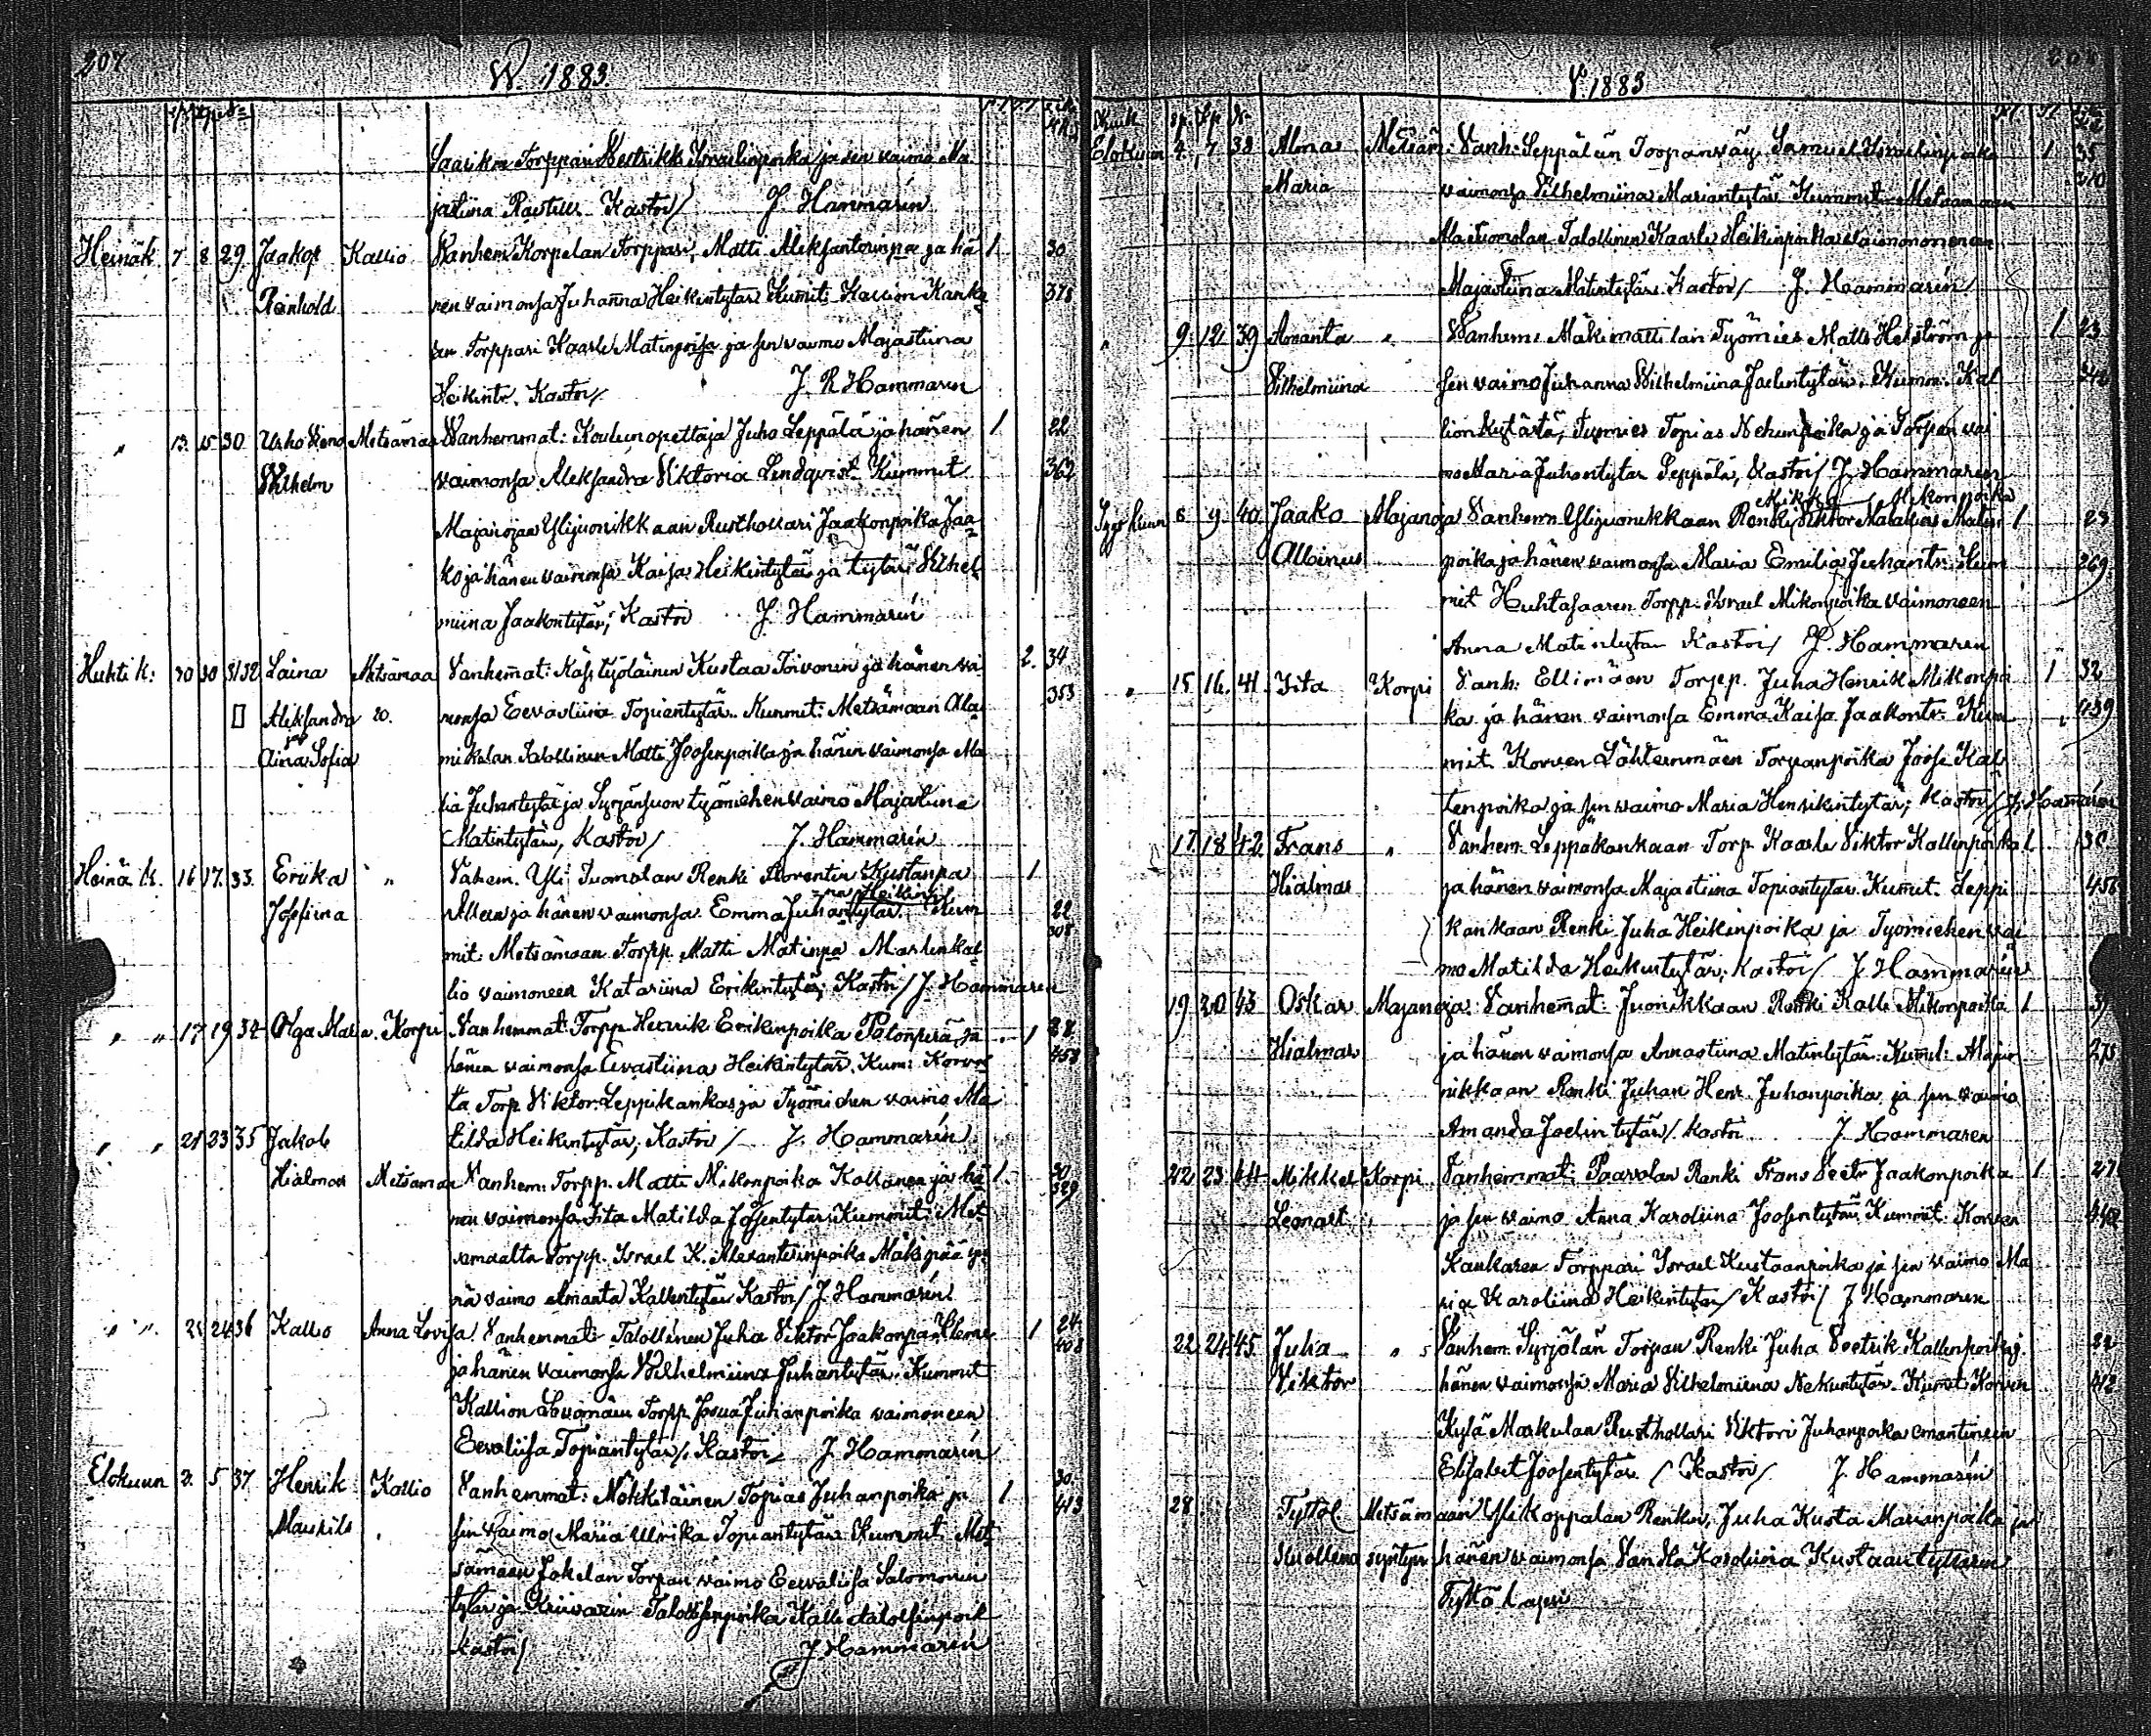 207
W. 1883.
Saarikon Torppari Kustaa Israelinpoika ja sen vaimo Ma
jastiina Kastoi/ J. Hammarén
Heinäk. 7 8 29 Jaakop Kallio Vanhem. Korpelan Torppari, Matti Aleksanterinpa ja hä 1 30
Reinhold nen vaimonsa Juhanna Heikintytär Kummit: Kallion Kanka 378
an Torppari Kaarle Matinpoika ja sen vaimo Majastiina
Heikintr. Kastoi/ J. R. Hammarén
" 13 15 30 Urho Weno Metsämaa Vanhemmat: Koulunopettaja Juho Leppälä ja hänen 1 22
Wilhelm vaimonsa Aleksandra Viktoria Lindqvist. Kummit 362
Majanojan Ylijuonikkaan Rusthollari Jaakonpoika Jaa
ko ja hänen vaimonsa Kaisa Heikintytär ja tytär Vilhel
miina Jaakontytär; Kastoi J. Hammarén
Huhtik: 30 30 31/32 Laina Metsämaa Vanhemat: Käsityöläinen Kustaa Toivonen ja hänen vai 2. 34
Aleksandra 20. monsa Eevastiina Topiantytär. Kummit: Metsämaan Ala 353
ja
Aina Sofia mikolan Talollinen Matti Joosenpoika ja hänen vaimonsa Ma
ria Juhantytär ja Syrjänsuon työmiehen vaimo Majastiina
Matintytär, Kastoi/ J. Hammarén
Heinä k. 16 17. 33. Eriika " Vahem. Yli Tuomolan Renki Florentin Kustanpa 1
Heikin
Josefiina ja hänen vaimonsa Emma Juhantytär Kum 22 308
mit Metsämaan Torpp. Matti Matinpa Marlinkal
lio vaimoneen Katariina Erikintytär; Kastoi/ J. Hammarén
" " 17 19 34 Olga Maria Korpi Vanhemmat: Torpp Henrik Erikinpoika Palonperä ja 1 28
hänen vaimonsa Eevastiina Heikintytär. Kum: Korves 458
ta Torp Viktor Leppikankas ja Työmiehen vaimo Ma
" " 21 23 35 Jakob tilda Heikintytär; Kastoi/ J. Hammarén
Hialmar Metsämaa Vanhem: Torpp. Matti Mikonpoika Kallanen ja hä 1. 30 329
nen vaimonsa Iita Matilda Josentytär. Kummit: Met
sämaalta Torpp. Israel K. Alexanterinpoika Mäkipää y.
nä vaimo Amanta Kallentytär Kastoi/ J. Hammarén
" " 21 24 36 Kallio Anna Lovisa Vanhemmat: Talollinen Juha Viktor Jaakonpa 1 24
ja hänen vaimonsa Wilhelmiina Juhantytär. Kummit 408
Kallion Torpp. Josua Juhanpoika vaimoneen
Eevaliisa Topiantytär/. Kastoi/ J. Hammarén
Elokuun 2. 5 37 Henrik Kallio Vanhemmat: Mökkiläinen Topias Juhanpoika ja 1 30
Mauritz sen vaimo Maria Ulrika Topiantytär. Kummit: Met 413
sämaan Jokelan Torpan vaimo Eevaliisa Salomonin
tytär ja Talollisenpoika Kalle
Kastoi/ J. Hammarén
V. 1883
Kuuk. sp. kp. N:
Elokuun 4. 7 38 Alma Metsäm: Vanh: Seppälän Torpanväy Samuel Israelinpoika 1 35
Maria vaimonsa Vilhelmiina Mariantytär. Kummit: Metsämaan 310
Alatuomolan Talollinen Kaarle Heikinpoika vaimoneen
Majastiina Matintytär. Kastoi/ J. Hammarén/
" 9. 12 39 Amanta " Vanhem: Mäkimattilan Työmies Matti Helström ja 1 23
Vilhelmiina sen vaimo Juhanna Wilhelmiina Joelintytär. Kumm: Kal 342
lion kylästä, Työmies Topias Nehunpoika ja Torpan vai
mo Maria Juhontytär Leppälä, Kastoi/ J. Hammarén
Mikkel Mikonpoika
Syyskuun 8 9 40 Jaako Majanoja Vanhem Ylijuonikkaan Renki Viktor Matin 1 23
Albinus poika ja hänen vaimonsa Maria Emilia Juhantr. Kum 269
mit Huhtasaaren Torpp. Israel Mikonpoika vaimoneen
Anna Matintytär Kastoi/ J. Hammarén
" 15 16. 41. Iita Korpi Vanh: Ellimäen Torpp. Juha Henrik Mikonpoi 1 32
ka ja hänen vaimonsa Emma Kaisa Jaakontr. Kum 439
mit. Korven Lähteenmäen Torpanpoika Joose Kal
lenpoika ja sen vaimo Maria Henrikintytär; Kastoi/ J. Hammarén
17. 18 42 Frans " Vanhem. Leppäkankaan Torp Kaarle Viktor Kallenpoika 1. 30
Hialmar ja hänen vaimonsa Majastiina Topiantytär. Kummit. Leppi 456
kankaan Renki Juha Heikinpoika ja Työmiehen vai
mo Matilda Heikintytär. Kastoi/ J. Hammarén
19 20 43 Oskar Majanoja. Vanhemat: Juonikkaan Renki Kalle Mikonpoika 1
Hialmar ja hänen vaimonsa Annastiina Matintytär. Kummit: Aljuo 275
nikkaan Renki Juhan Henr. Juhanpoika ja sen vaimo
Amanda Joelintytär/ Kastoi J. Hammarén
22 23 44 Mikkel Korpi Vanhemmat: Paavolan Renki Frans Veetr Jaakonpoika 1 27
Leonart " ja sen vaimo Anna Karoliina Joosentytär Kummit: Korven
Kankaren Torppari Israel Kustaanpoika ja sen vaimo Ma
ria Karoliina Heikintytär/ Kastoi/ J. Hammarén
22 24 45. Juha " Vanhem. Syrjälän Torpan Renki Juha Veetrik Kallenpoika j. 22
Viktor hänen vaimonsa Maria Vilhelmiina Nehuntytär. Kummit: Korven 412
Kylä Markulan Rusthollari Viktori Juhanpoika emäntineen
Elisabet Joosentytär / Kastoi/ J. Hammarén
28 Tyttöl. Metsämaan Ylikoppalan Renkin, Juha Kusta Marianpoika ja
kuollena syntyn hänen vaimonsa Karoliina Kustaantyttären
Tyttö lapsi